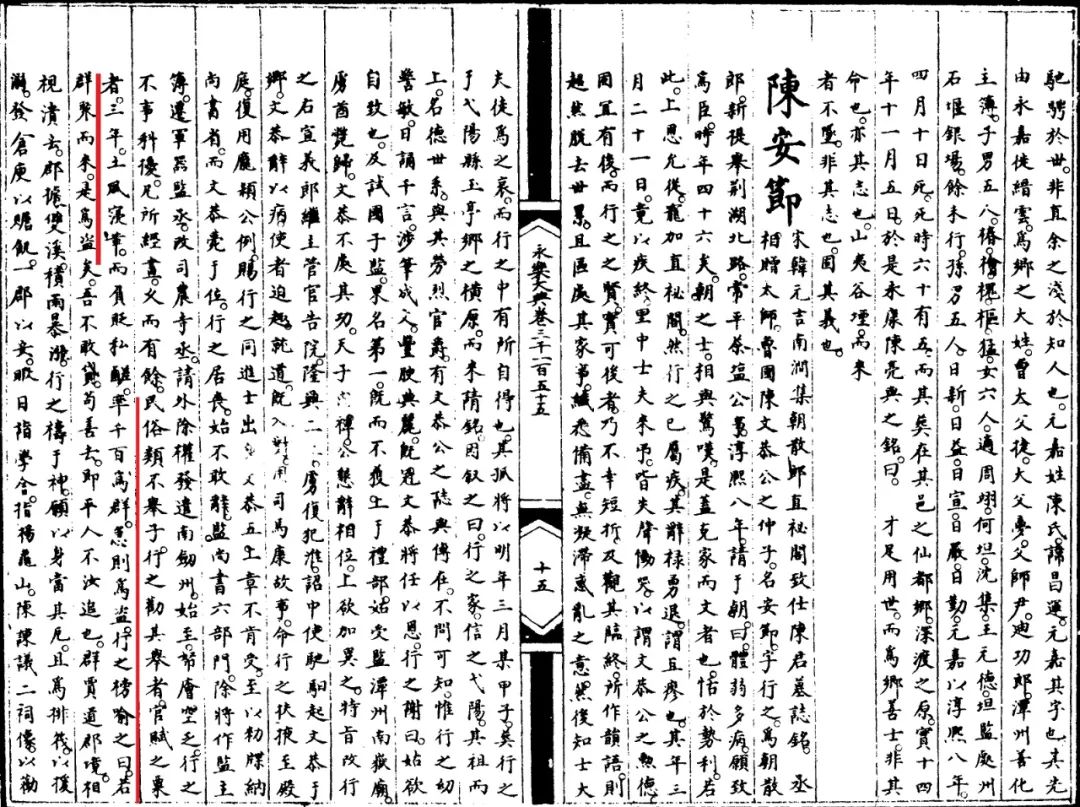 馳騁於世。非直余之淺於知人也。元嘉姓陳氏。諱昌運。元嘉其字也。其先
由永嘉徙縉雲。爲鄉之大姓。曾大父捷。大父夢。父師尹。迪功郎。潭州善化
主簿。子男五人。椿檜櫆樞猛。女六人。適周翊。何坦。沈集。王元德。坦監處州
石堰銀場。餘未行。孫男五人。日新。日益。日宣。日嚴。日勤。元嘉以淳熙八年。
四月十日死。死時六十有五。而其葬在其邑之仙都鄉。深渡之原。實十四
年十一月五日。於是永康陳亮與之銘曰。 才足用世。而爲鄉善士。非其
命也。亦其志也。山夷谷堙。而來
者不墜。非其志也。固其義也。
陳安節 宋韓元吉南澗集朝散郎直祕閣致仕陳君墓誌銘。 丞
相贈太師。魯國陳文恭公之仲子。名安節。字行之。爲朝散
郎。新提舉荊湖北路。常平茶鹽公事。淳熙八年。請于朝曰。體弱多病。願致
爲臣。時年四十六矣。朝之士。相與驚嘆。是蓋克家而文者也。恬於勢利。若
此。上恩允從。寵加直祕閣。然行之已屬疾。其辭祿勇退。謂且瘳也。其年三
月二十一日。竟以疾終。里中士夫來弔。皆失聲慟哭。以謂文恭公之勲德
固宜有後。而行之之賢。實可後者。乃不幸短折。及觀其臨終。所作韻語。則
超然脫去世累。且區處其家事。纖悉備盡。無凝滯惑亂之意。然後知士大
永樂大典卷三千一百五十五
十五
夫徒爲之哀。而行之中有所自得也。其孤將以明年三月某甲子。葬行之
于弋陽縣玉亭鄉之橫原。而來請銘。因叙之曰。行之家。信之弋陽。其祖而
上。名德世系。與其勞烈官爵。有文恭公之誌與傳在。不問可知。惟行之幼
警敏。日誦千言。涉筆成文。豐腴典麗。既冠文恭將任以恩。行之謝曰。姑欲
自致也。及試國子監。果名第一。既而不獲上于禮部。姑受監潭州南嶽廟。
虜酋斃歸。文恭不處其功。天子禪。公懇辭相位。上欲加異之。特旨改行
之右宣義郎繼主管官告院。隆興二。虜復犯淮詔中使馳馹起文恭于
鄉。文恭辭以病使者迫趣就道。既入對。用司馬康故事。命行之扶掖至殿
庭。復用龐穎公例。賜行之同進士出文恭五上章不肯受。至以初牒納
尚書省。而文恭薨于位。行之居喪。始不敢辭。監尚書六部門。除將作監主
簿。遷軍器監丞。改司農寺丞。請外除權發遣南劒州。始至。帑廥空乏。行之
不事科擾。凡所經畫。久而有餘。民俗類不舉子。行之勸其舉者。官賦之粟
者。三年土風寖革。而負販私鹺。率千百爲群。急則爲盜。行之榜喻之曰。若
群聚而來。是爲盜矣。吾不敢貸。苟善去。即平人不汝追也。群賈道郡境。相
視潰去。郡據雙溪。積雨暴漲。行之禱于神。願以身當其厄。且爲排筏以援
溺。發倉庾以賑飢。一郡以安。暇日詣學舍。指楊龜山。陳諫議二祠像。以勸